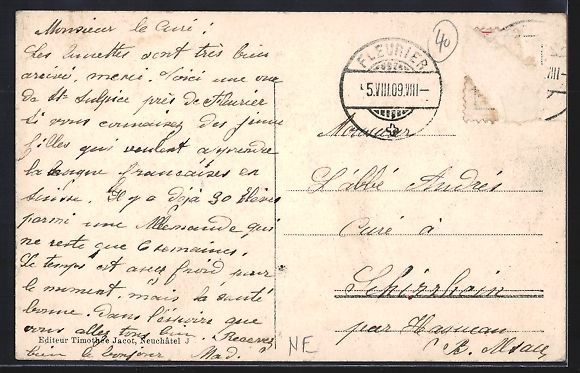 Monsieur le Curé !
Les lunettes sont très bien
arrivé, merci. Voici une vue
de St Sulpice près de Fleurier
Si vous connaissez des jeune
filles qui veulent apprendre
la langue françaises en
suisse. Il y a déjà 30 élèves
parmi une Allemande qui
ne reste que 6 semaines.
Le temps est assez froid pour
le moment, mais la santé
bonne. Dans l'espoire que
vous allez tous bien. Recevez
bien le bonjour Mad.
Editeur Timothée Jacot, Neuchâtel
40
FLEURIER
5.VIII.09.VIII-
VIII-
Monsieur
L'abbé André
Curé à
Schirrhein
par Haguenau
Alsace
NE